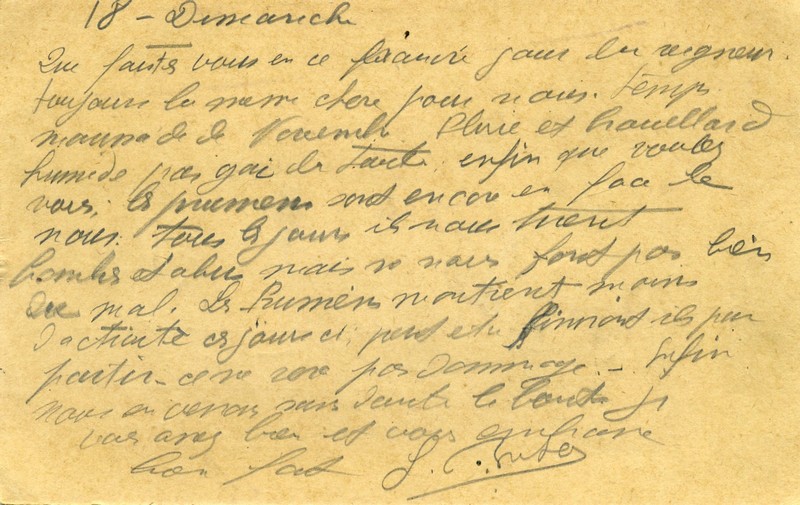 18 - Dimanche
Que faites vous en ce jour du seigneur.
toujours la meme chose pour nous. Temps
maussade de Novembre. Pluie et brouillard
humide pas gai du tout. enfin que voulez
vous, les sont encore en face de
nous. Tous les jours ils nous tirent
bombes et obus mais ne nous font pas bien
du mal. Les montrent moins
d'activité ces jours ci, peut etre finiront ils par
partir - ce ne sera pas dommage. - Enfin
nous en verrons sans doute le bout. Je
vous bien et vous embrasse
bien fort